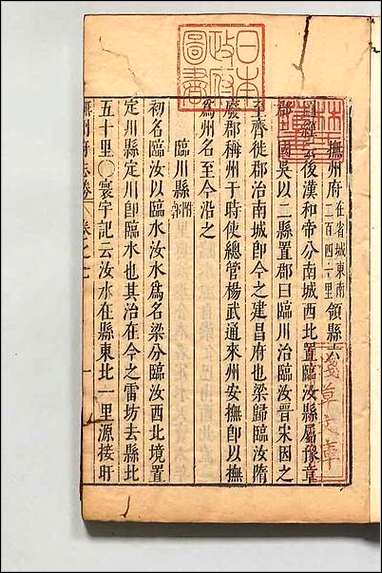 日本
政府
圖書
撫州府 在省城東南二百四十里 領縣六
後漢和帝分南城西北置臨汝縣屬豫章
郡三國吳以二縣置郡曰臨川治臨汝晉宋因之
至齊徙郡治南城即今之建昌府也梁歸臨汝隋
廢郡稱州于時使總管楊武通來州安撫即以撫
爲州名至今沿之
臨川縣 附郭
初名臨汝以臨水汝水爲名梁分臨汝西北境置
定川縣定川即臨水也其治在今之雷坊去縣北
五十里〇寰宇記云汝水在縣東北一里源接盱
撫州府志 卷之七 一
淺草文庫